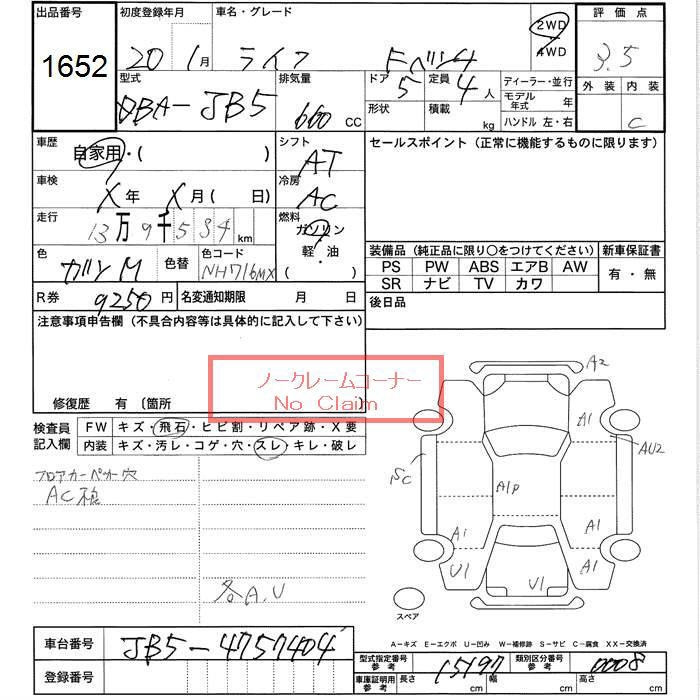 出品番号
1652
初度登録年月
20 1月
車名・グレード
ライフ
2WD
4WD
評価点
3.5
型式
DBA-JB5
排気量
660 CC
ドア
5
形状
定員
4人
積載
kg
ディーラー・並行
モデル年式 年
ハンドル 左・右
外装 内装
C
車歴
自家用・( )
シフト
AT
セールスポイント (正常に機能するものに限ります)
車検
X年 X月( 日)
冷房
AC
走行
13万9千534km
燃料
ガソリン
軽・油
( )
色
ガンM
色替
色コード
NH716MX
装備品 (純正品に限り○をつけてください)
新車保証書
PS PW ABS エアB AW
有・無
SR ナビ TV カワ
R券
9250円
名変通知期限 月 日
後日品
注意事項申告欄 (不具合内容等は具体的に記入して下さい)
ノークレームコーナー
No Claim
修復歴 有 〔箇所 〕
検査員記入欄
FW キズ・飛石・ヒビ割・リペア跡・X要
内装 キズ・汚レ・コゲ・穴・スレ・キレ・破レ
フロアカーペット穴
各A,U
A2
A1
AU2
SC
A1P
A1
A1
U1
U1
A1
スペア
A-キズ E-エクボ U-凹み W-補修跡 S-サビ C-腐食 XX-交換済
車台番号
JB5-4757404
登録番号
型式指定番号 参考
15197
類別区分番号 参考
0008
車庫証明用 参考
長さ cm
幅 cm
高さ cm